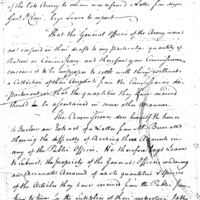 of the late Army to whom was referred a Letter from Major
Genl St Clair, begs Leave to report
That the General Officers of the Army were
not confined in their draft to any particular quantity of
Ration or Commissary and therefore your Commissioner
conceives it to be improper to settle with them without
a Collection of their Receipts from the Commissaries de-
partment and that the quantities they have received
should be ascertained in some other manner
The Commissioner does himself the honor
to Inclose an Extract of a Letter from Mr
shewing the difficulty of Checking these Accounts in
any of the Public Offices. He therefore begs Leave
to Submit, the propriety of the General Officers rendering
an Accurate Account of such quantities & Species
of the Articles they have received from the Public from
time to time in the Satisfaction of their respective